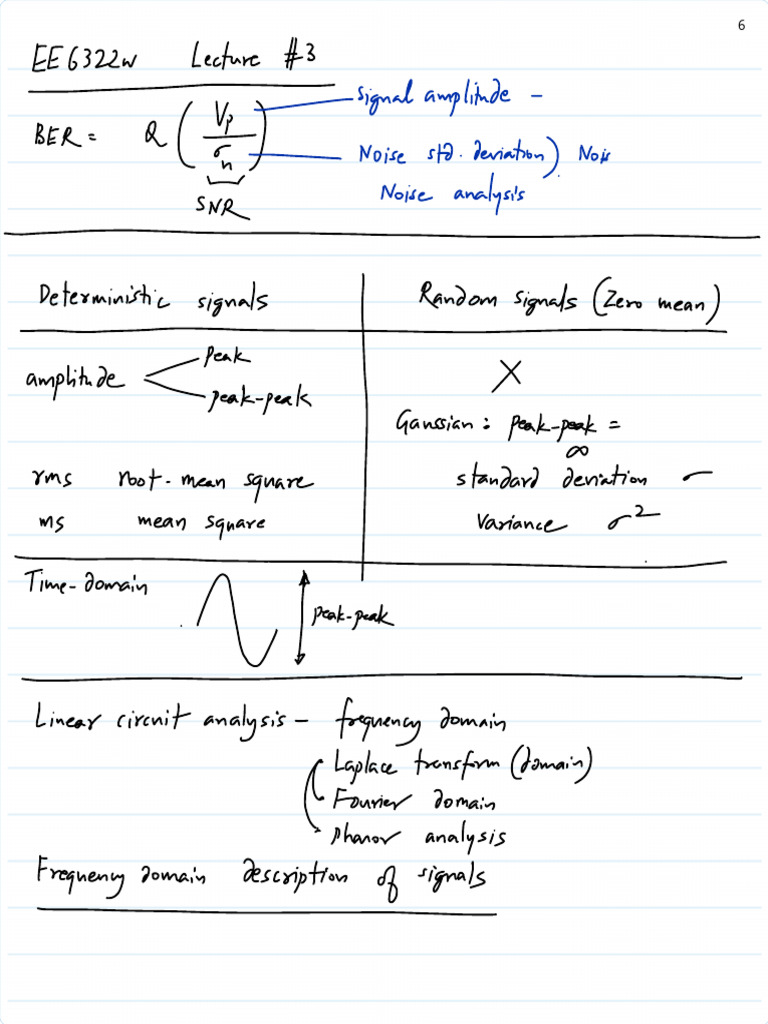 6
EE6322w Lecture #3
BER = Q ( Vp / σn ) Signal amplitude –
Noise std. deviation) Nois
SNR
Noise analysis
Deterministic signals Random signals (Zero mean)
amplitude peak
peak-peak
X
Gaussian: peak-peak =
∞
rms root-mean square standard deviation σ
ms mean square Variance σ²
Time-domain
peak-peak
Linear circuit analysis – frequency domain
Laplace transform (domain)
Fourier domain
Phasor analysis
Frequency domain description of signals